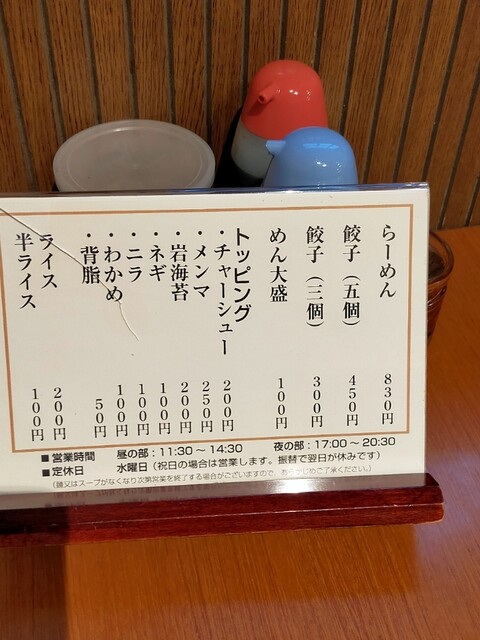 らーめん 830円
餃子（五個） 450円
餃子（三個） 300円
めん大盛 100円
トッピング
・チャーシュー 200円
・メンマ 250円
・岩海苔 200円
・ネギ 100円
・ニラ 100円
・わかめ 100円
・背脂 50円
ライス 200円
半ライス 100円
■営業時間 昼の部：11:30～14:30 夜の部：17:00～20:30
■定休日 水曜日（祝日の場合は営業します。振替で翌日が休みです）
（麺又はスープがなくなり次第営業を終了する場合がございますので、あらかじめご了承ください。）